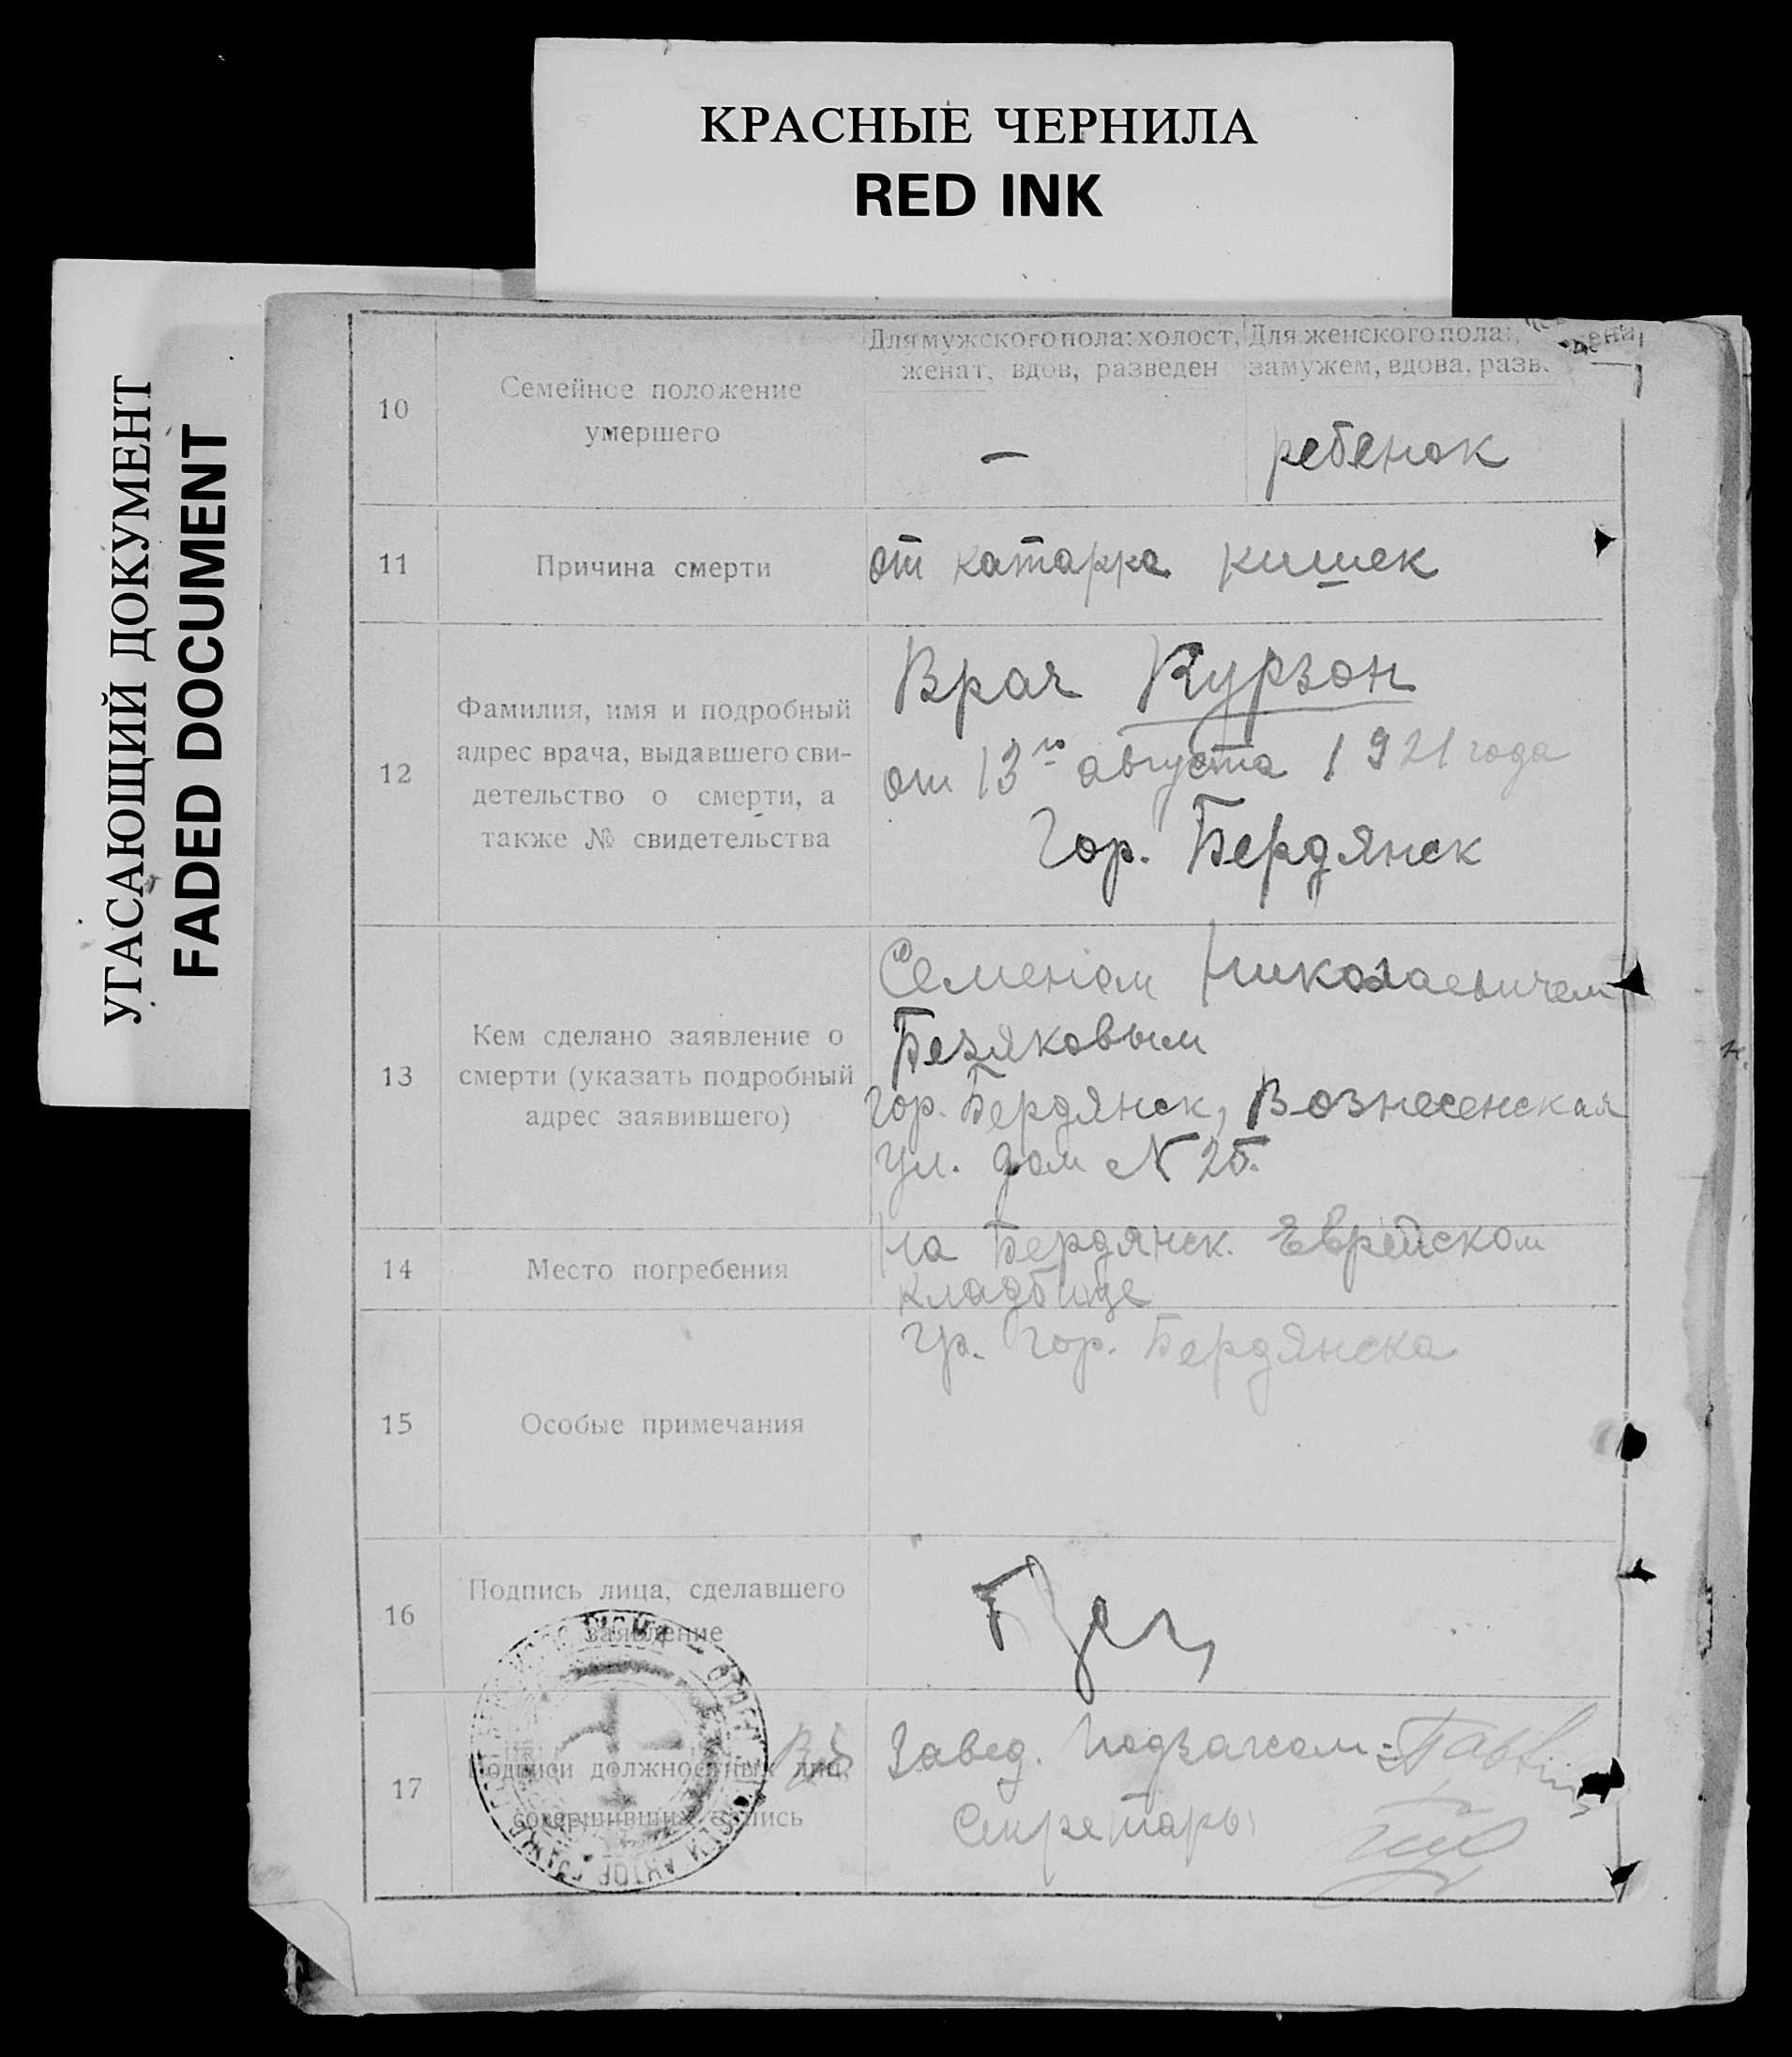 КРАСНЫЕ ЧЕРНИЛА
RED INK
УГАСАЮЩИЙ ДОКУМЕНТ
FADED DOCUMENT
10
Семейное положение
умершего
Для мужского пола: холост,
женат, вдов, разведен
Для женского пола:
замужем, вдова, разв.
—
ребенок
11
Причина смерти
от катарра кишек
12
Фамилия, имя и подробный
адрес врача, выдавшего сви-
детельство о смерти, а
также № свидетельства
Врач Курзон
от 13го августа 1921 года
Гор. Бердянск
13
Кем сделано заявление о
смерти (указать подробный
адрес заявившего)
Семеном Николаевичем
Безяковым
гор. Бердянск, Вознесенская
ул. дом N 25.
14
Место погребения
на Бердянск. Еврейском
кладбище
15
Особые примечания
гр. гор. Бердянска
16
Подпись лица, сделавшего
заявление
17
Подписи должностных лиц,
совершивших запись
Завед. Подзагсом:
Секретарь